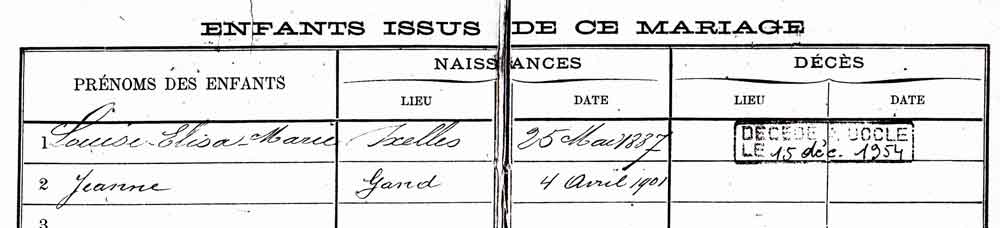 ENFANTS ISSUS DE CE MARIAGE
PRÉNOMS DES ENFANTS NAISSANCES DÉCÈS
LIEU DATE LIEU DATE
1 Louise-Elisa-Marie Ixelles 25 Mai 1887 DECEDE A UCCLE
LE 15 déc. 1954
2 Jeanne Gand 4 Avril 1901
3